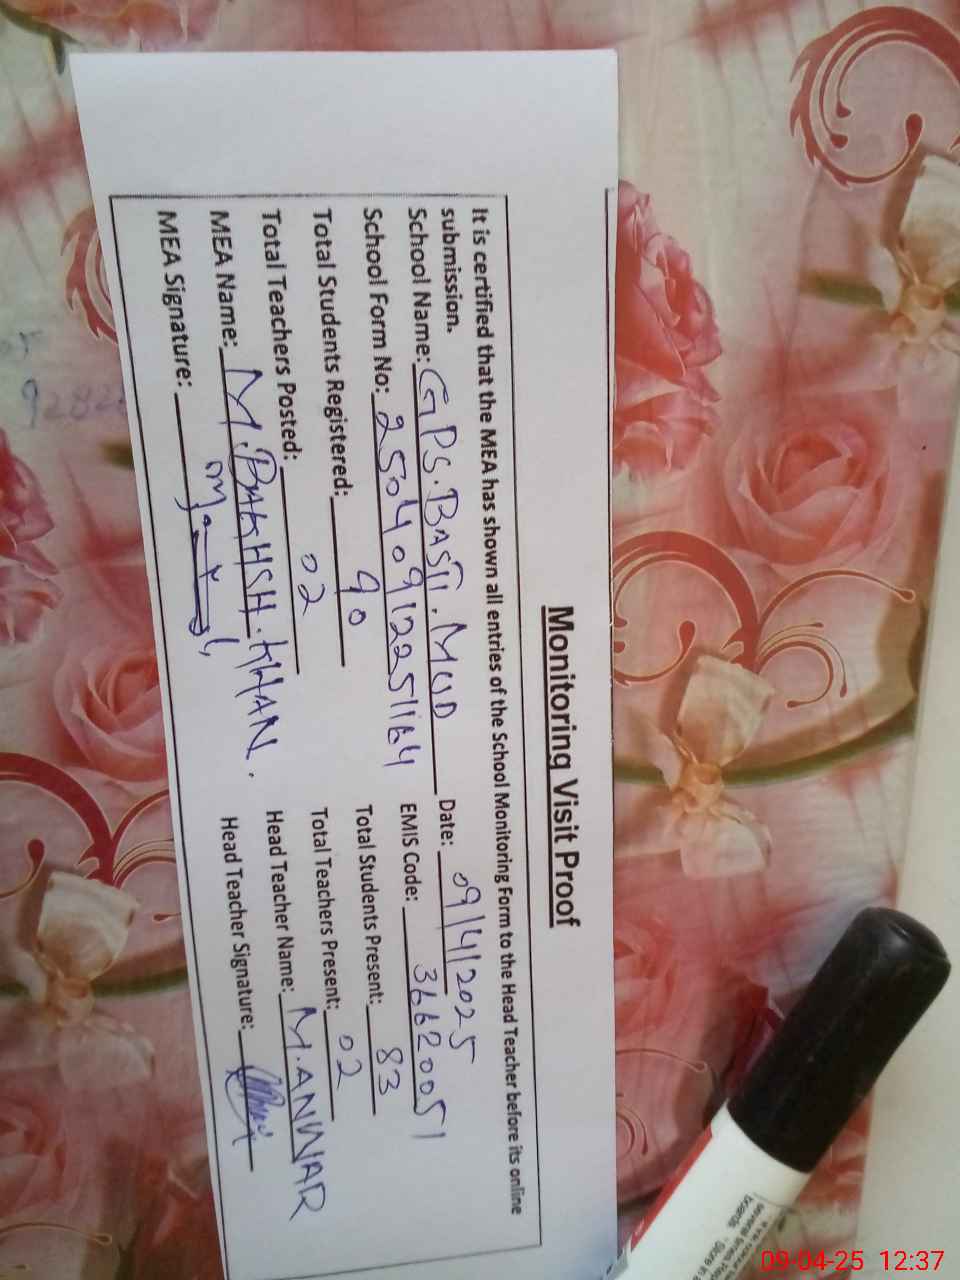 Monitoring Visit Proof
It is certified that the MEA has shown all entries of the School Monitoring Form to the Head Teacher before its online
submission.
School Name: GPS. BASTI. MUD Date: 09/4/2025
School Form No: 25040912251164 EMIS Code: 36620051
Total Students Registered: 90 Total Students Present: 83
Total Teachers Posted: 02 Total Teachers Present: 02
MEA Name: M. BAKHSH. KHAN. Head Teacher Name: M. ANWAR
MEA Signature: Head Teacher Signature:
boards
09-04-25 12:37